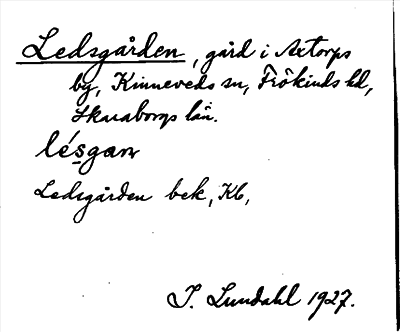 Ledsgården, gård i Axtorps
by, Kinneveds sn, Frökinds hd,
Skaraborgs län.
lésgan
Ledsgården bek, Kb,
I. Lundahl 1927.